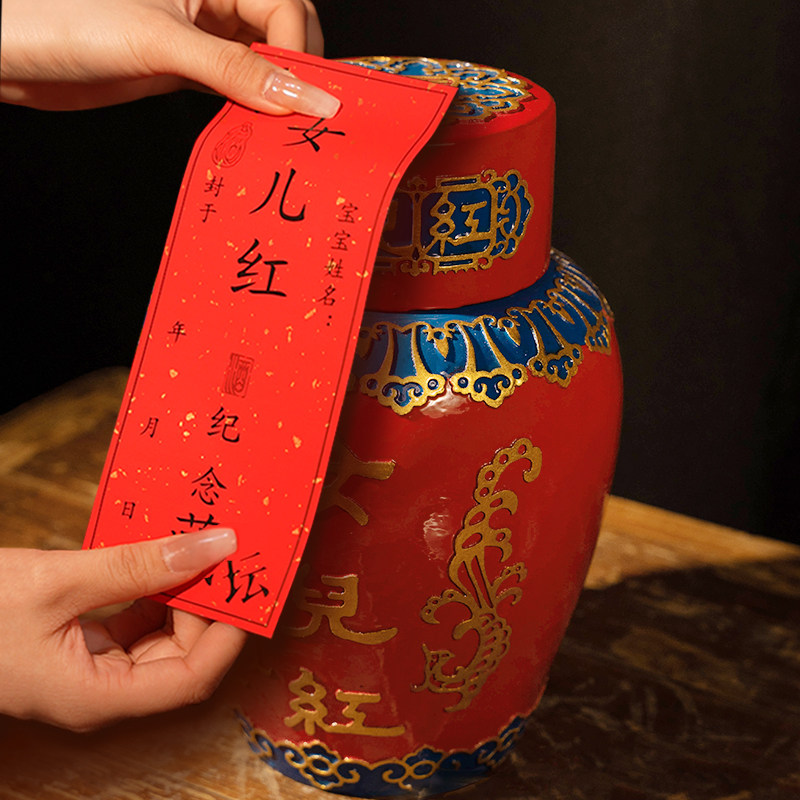 宝宝姓名：
女儿红
纪念
封于
年
月
日
紅
女兒紅